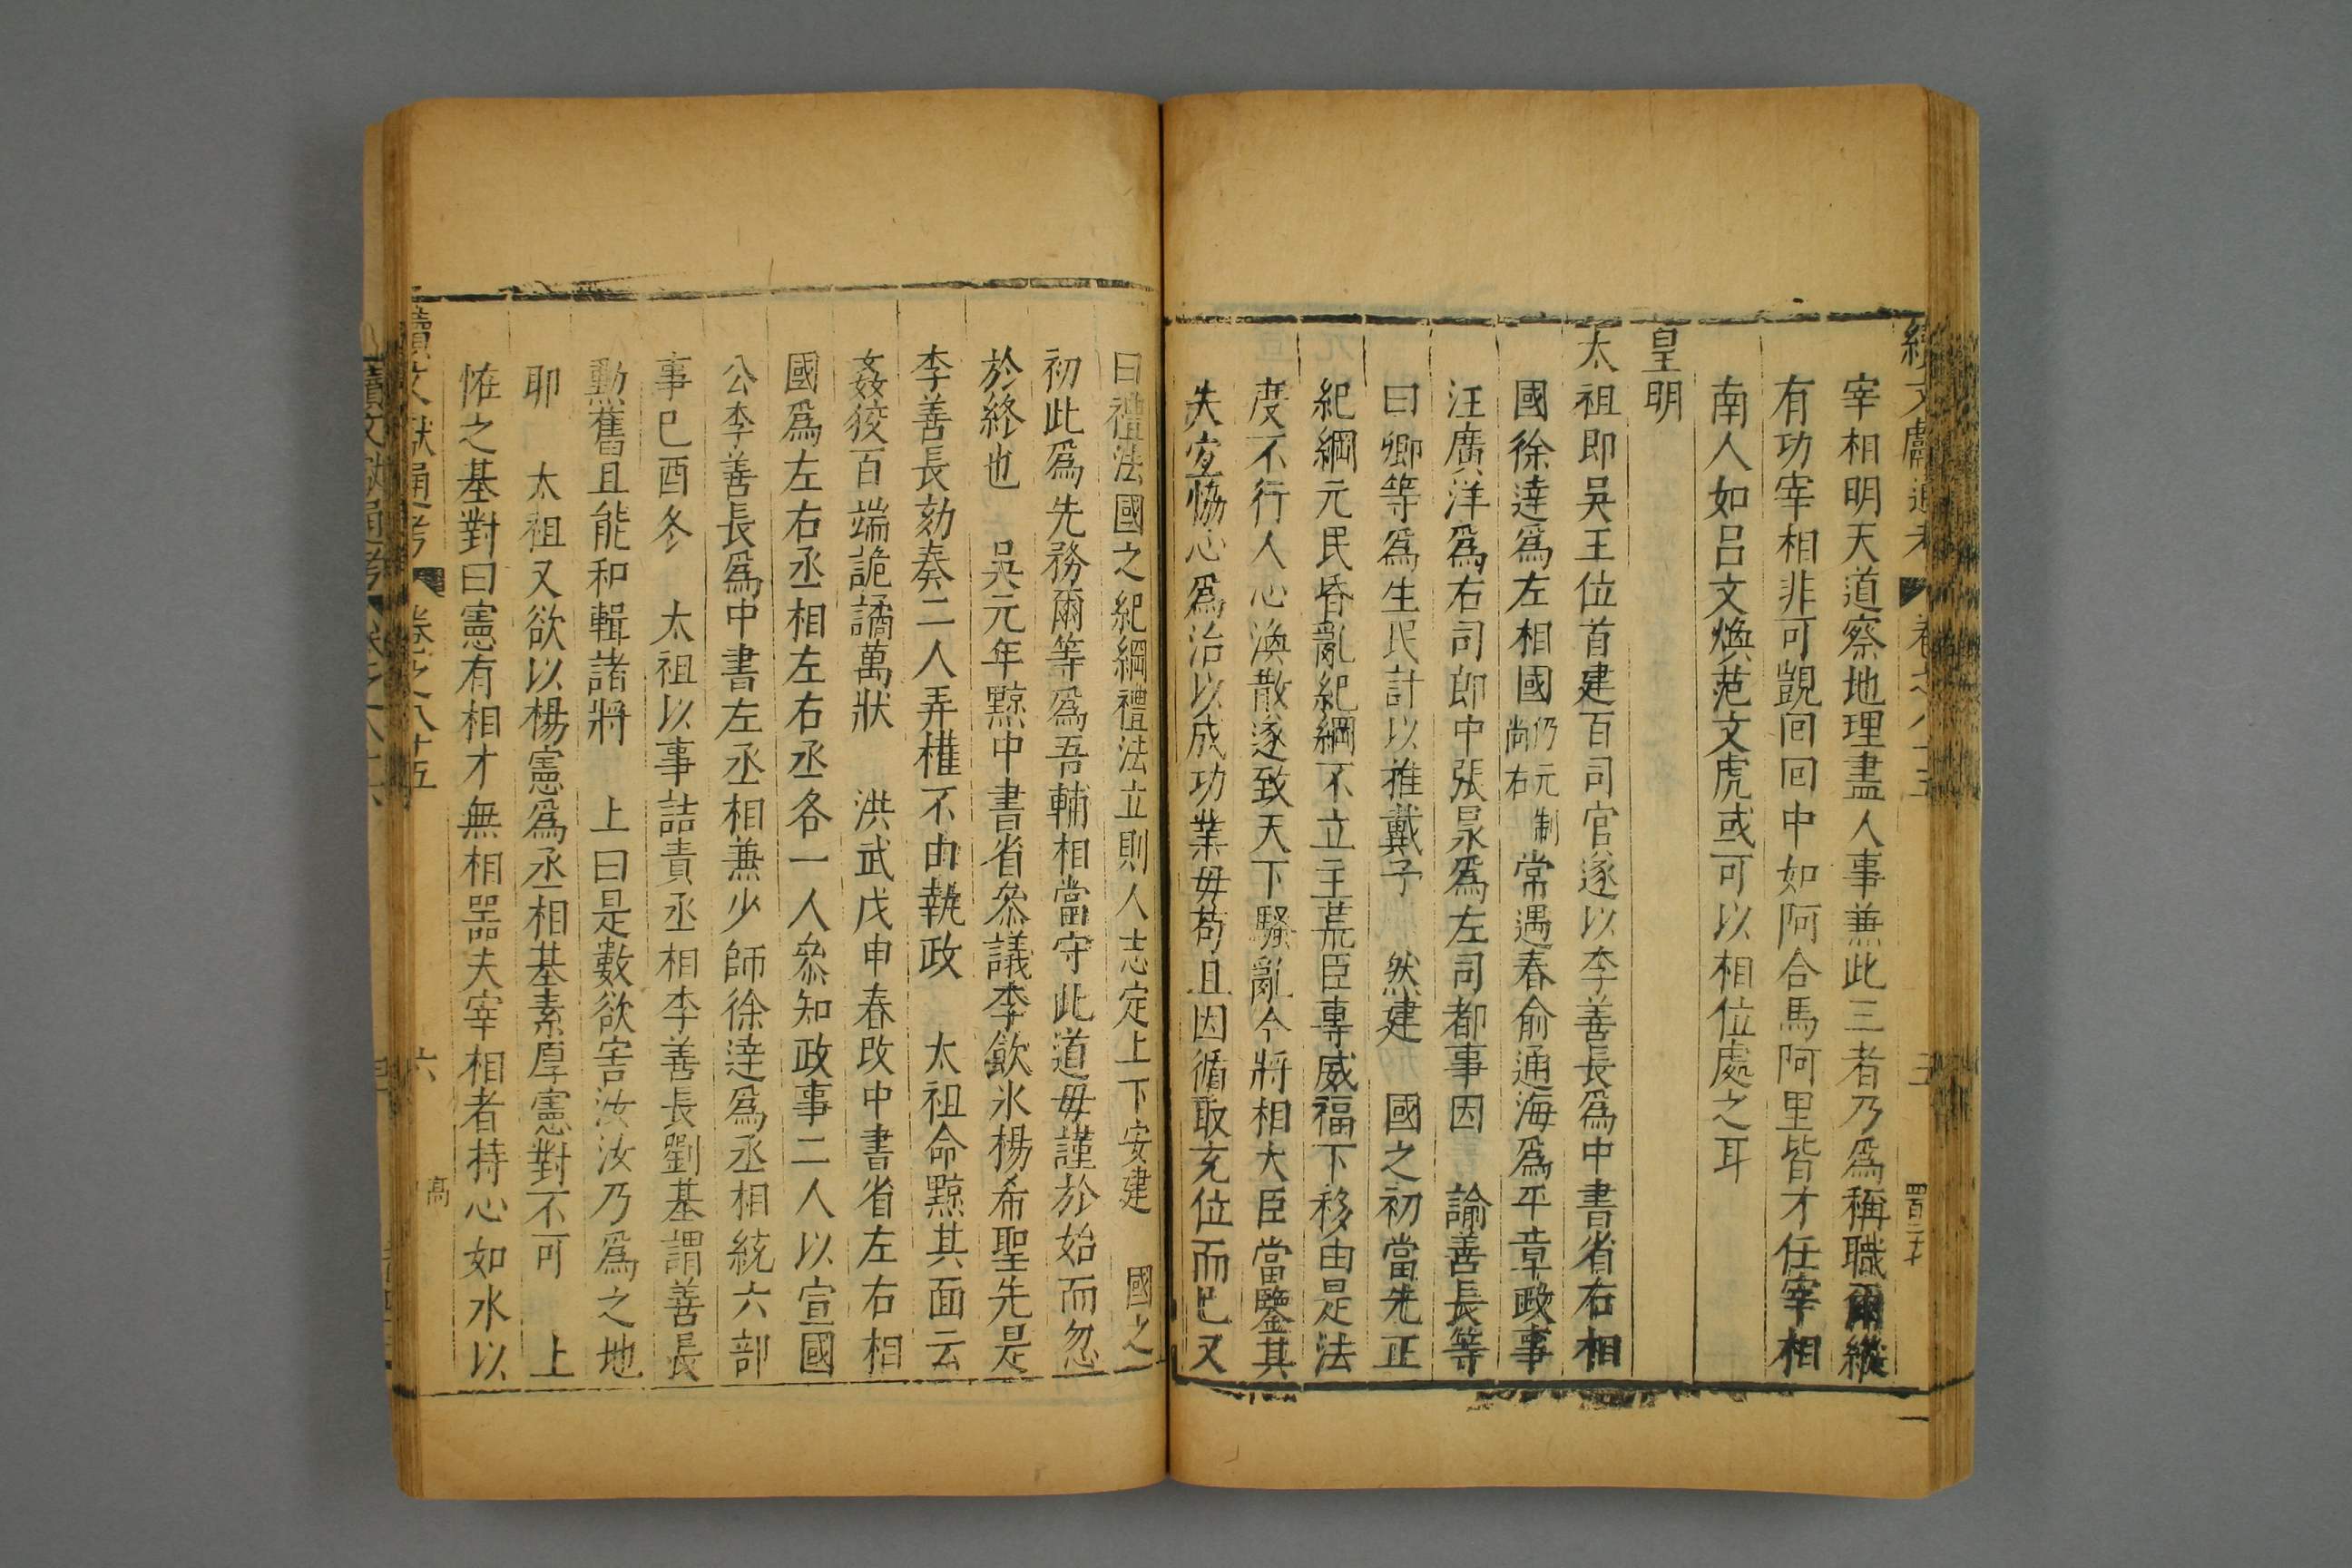 宰相明天道察地理盡人事兼此三者乃爲稱職爾縱
有功宰相非可覬回回中如阿合馬阿里皆才任宰相
南人如呂文煥范文虎或可以相位處之耳
皇明
太祖即吳王位首建百司官遂以李善長爲中書省右相
國徐達爲左相國仍元制尚右常遇春俞通海爲平章政事
汪廣洋爲右司郎中張昶爲左司都事因 諭善長等
曰卿等爲生民計以推戴予 然建 國之初當先正
紀綱元民昏亂紀綱不立主荒臣專威福下移由是法
度不行人心渙散遂致天下騷亂今將相大臣當鑒其
失宜恊心爲治以成功業毋苟且因循取充位而已又
曰禮法國之紀綱禮法立則人志定上下安建 國之
初此爲先務爾等爲吾輔相當守此道毋謹於始而忽
於終也 吳元年黥中書省叅議李飲氷楊希聖先是
李善長劾奏二人弄權不由執政 太祖命黥其面云
姦狡百端詭譎萬狀 洪武戊申春改中書省左右相
國爲左右丞相左右丞各一人叅知政事二人以宣國
公李善長爲中書左丞相兼少師徐達爲丞相統六部
事已酉冬 太祖以事詰責丞相李善長劉基謂善長
勳舊且能和輯諸將 上曰是數欲害汝汝乃爲之地
耶 太祖又欲以楊憲爲丞相基素厚憲對不可 上
恠之基對曰憲有相才無相噐夫宰相者持心如水以
續文獻通考 卷之八十五 六 高